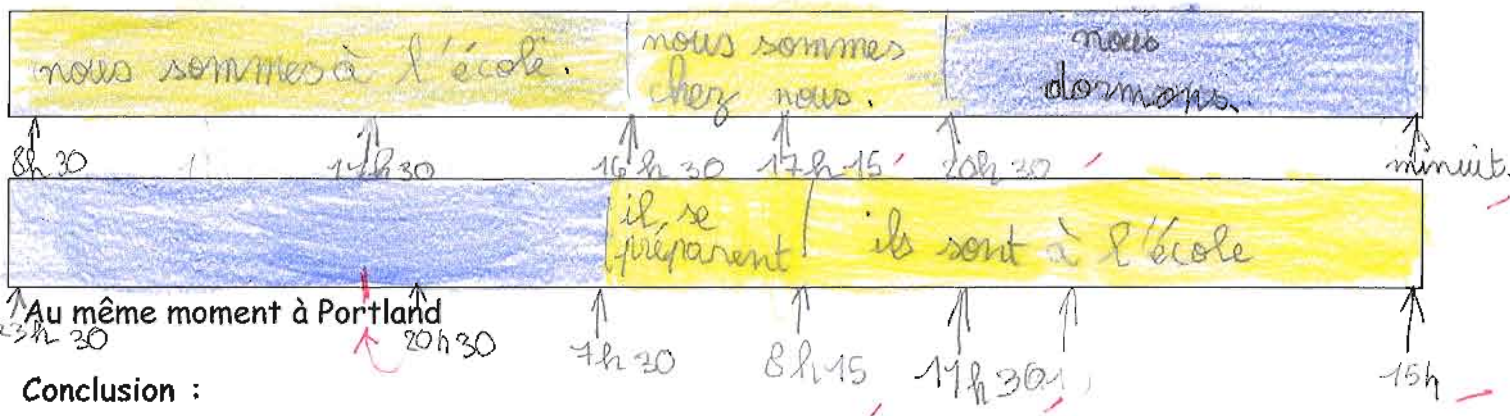 nous sommes à l'école.
nous sommes
chez nous.
nous
dormons.
8h30
11h30
16h30
17h15
20h30
minuit.
il se
préparent
ils sont à l'école
Au même moment à Portland
23h30
20h30
7h30
8h15
11h30
15h
Conclusion :